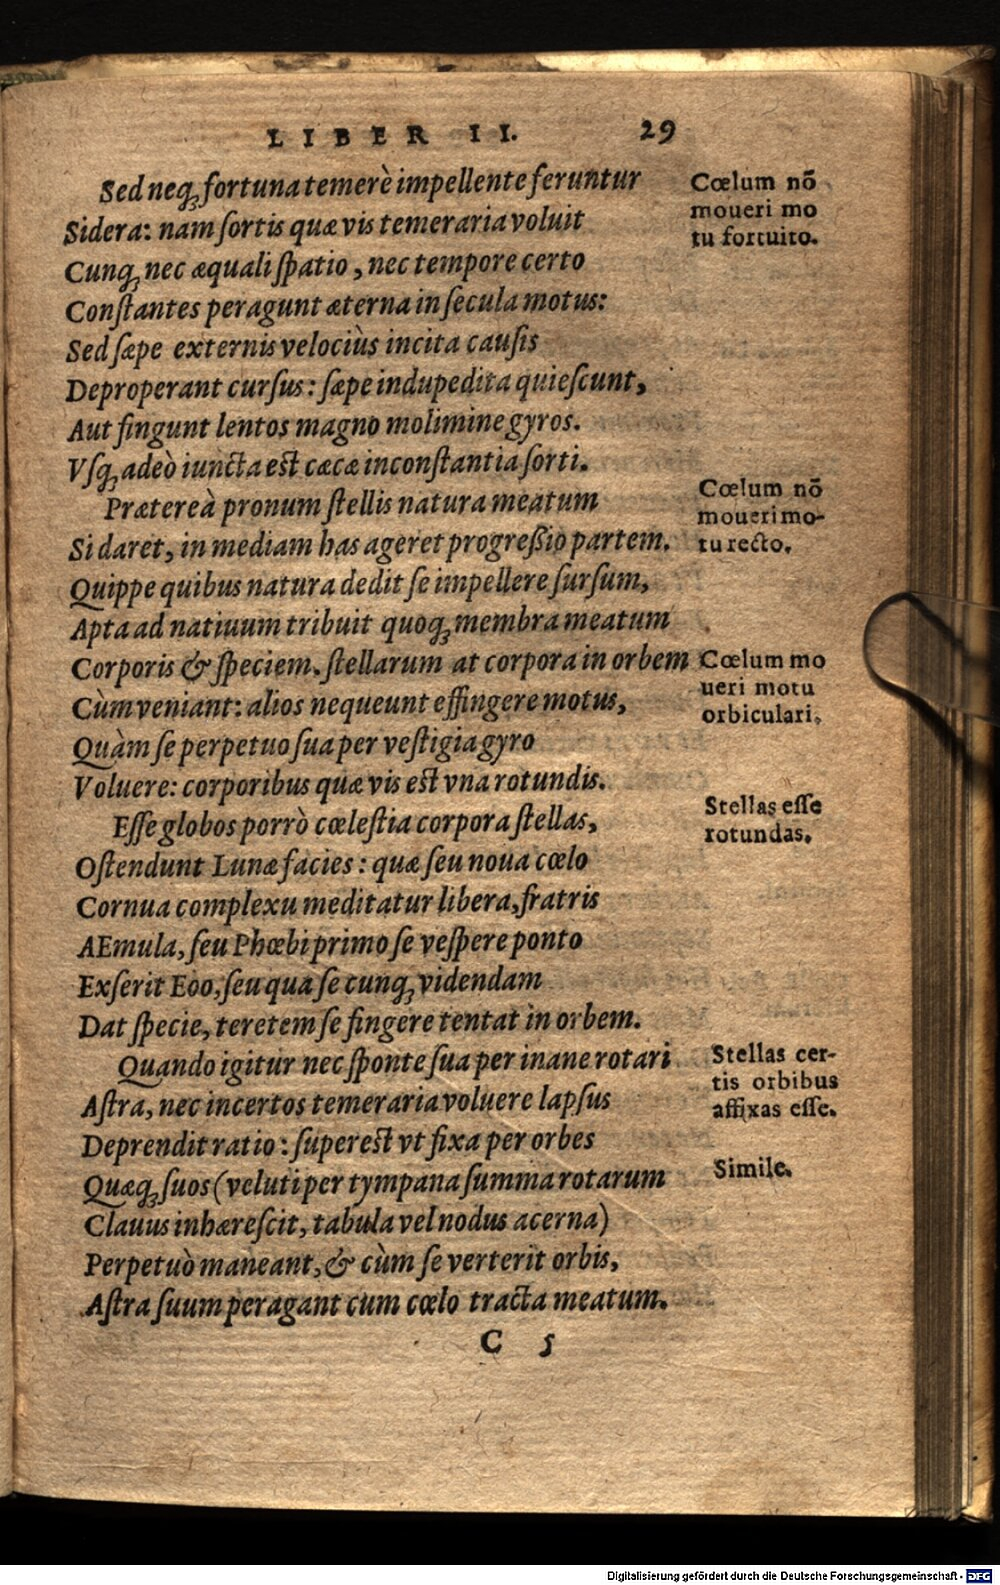 LIBER II. 29
Sed neq́ꝫ fortuna temerè impellente feruntur
Sidera: nam ſortis quæ vis temeraria voluit
Cunqꝫ nec æquali ſpatio, nec tempore certo
Conſtantes peragunt æterna in ſecula motus:
Sed ſæpe externis velociùs incita cauſis
Deproperant curſus: ſæpe indupedita quieſcunt,
Aut fingunt lentos magno molimine gyros.
Vſqꝫ adeò iuncta est cæcæ inconſtantia ſorti.
Prætereà pronum ſtellis natura meatum
Si daret, in mediam has ageret progreßio partem.
Quippe quibus natura dedit ſe impellere ſurſum,
Apta ad natiuum tribuit quoqꝫ membra meatum
Corporis & ſpeciem. ſtellarum at corpora in orbem
Cùm veniant: alios nequeunt effingere motus,
Quàm ſe perpetuo ſua per veſtigia gyro
Voluere: corporibus quæ vis est vna rotundis.
Eſſe globos porrò cœleſtia corpora ſtellas,
Oſtendunt Lunæ facies: quæ ſeu noua cœlo
Cornua complexu meditatur libera, fratris
AEmula, ſeu Phœbi primo ſe veſpere ponto
Exſerit Eoo, ſeu qua ſe cunqꝫ videndam
Dat ſpecie, teretem ſe fingere tentat in orbem.
Quando igitur nec ſponte ſua per inane rotari
Aſtra, nec incertos temeraria voluere lapſus
Deprendit ratio: ſuperest vt fixa per orbes
Quæqꝫ ſuos (veluti per tympana ſumma rotarum
Clauus inhæreſcit, tabula vel nodus acerna)
Perpetuò maneant, & cùm ſe verterit orbis,
Aſtra ſuum peragant cum cœlo tracta meatum.
C 5
Cœlum nõ
moueri mo
tu fortuito.
Cœlum nõ
moueri mo-
tu recto.
Cœlum mo
ueri motu
orbiculari.
Stellas eſſe
rotundas.
Stellas cer-
tis orbibus
affixas eſſe.
Simile.
Digitalisierung gefördert durch die Deutsche Forschungsgemeinschaft - DFG